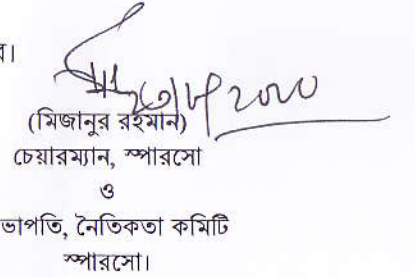 র।
(মিজানুর রহমান)
চেয়ারম্যান, স্পারসো
ও
ভাপতি, নৈতিকতা কমিটি
স্পারসো।